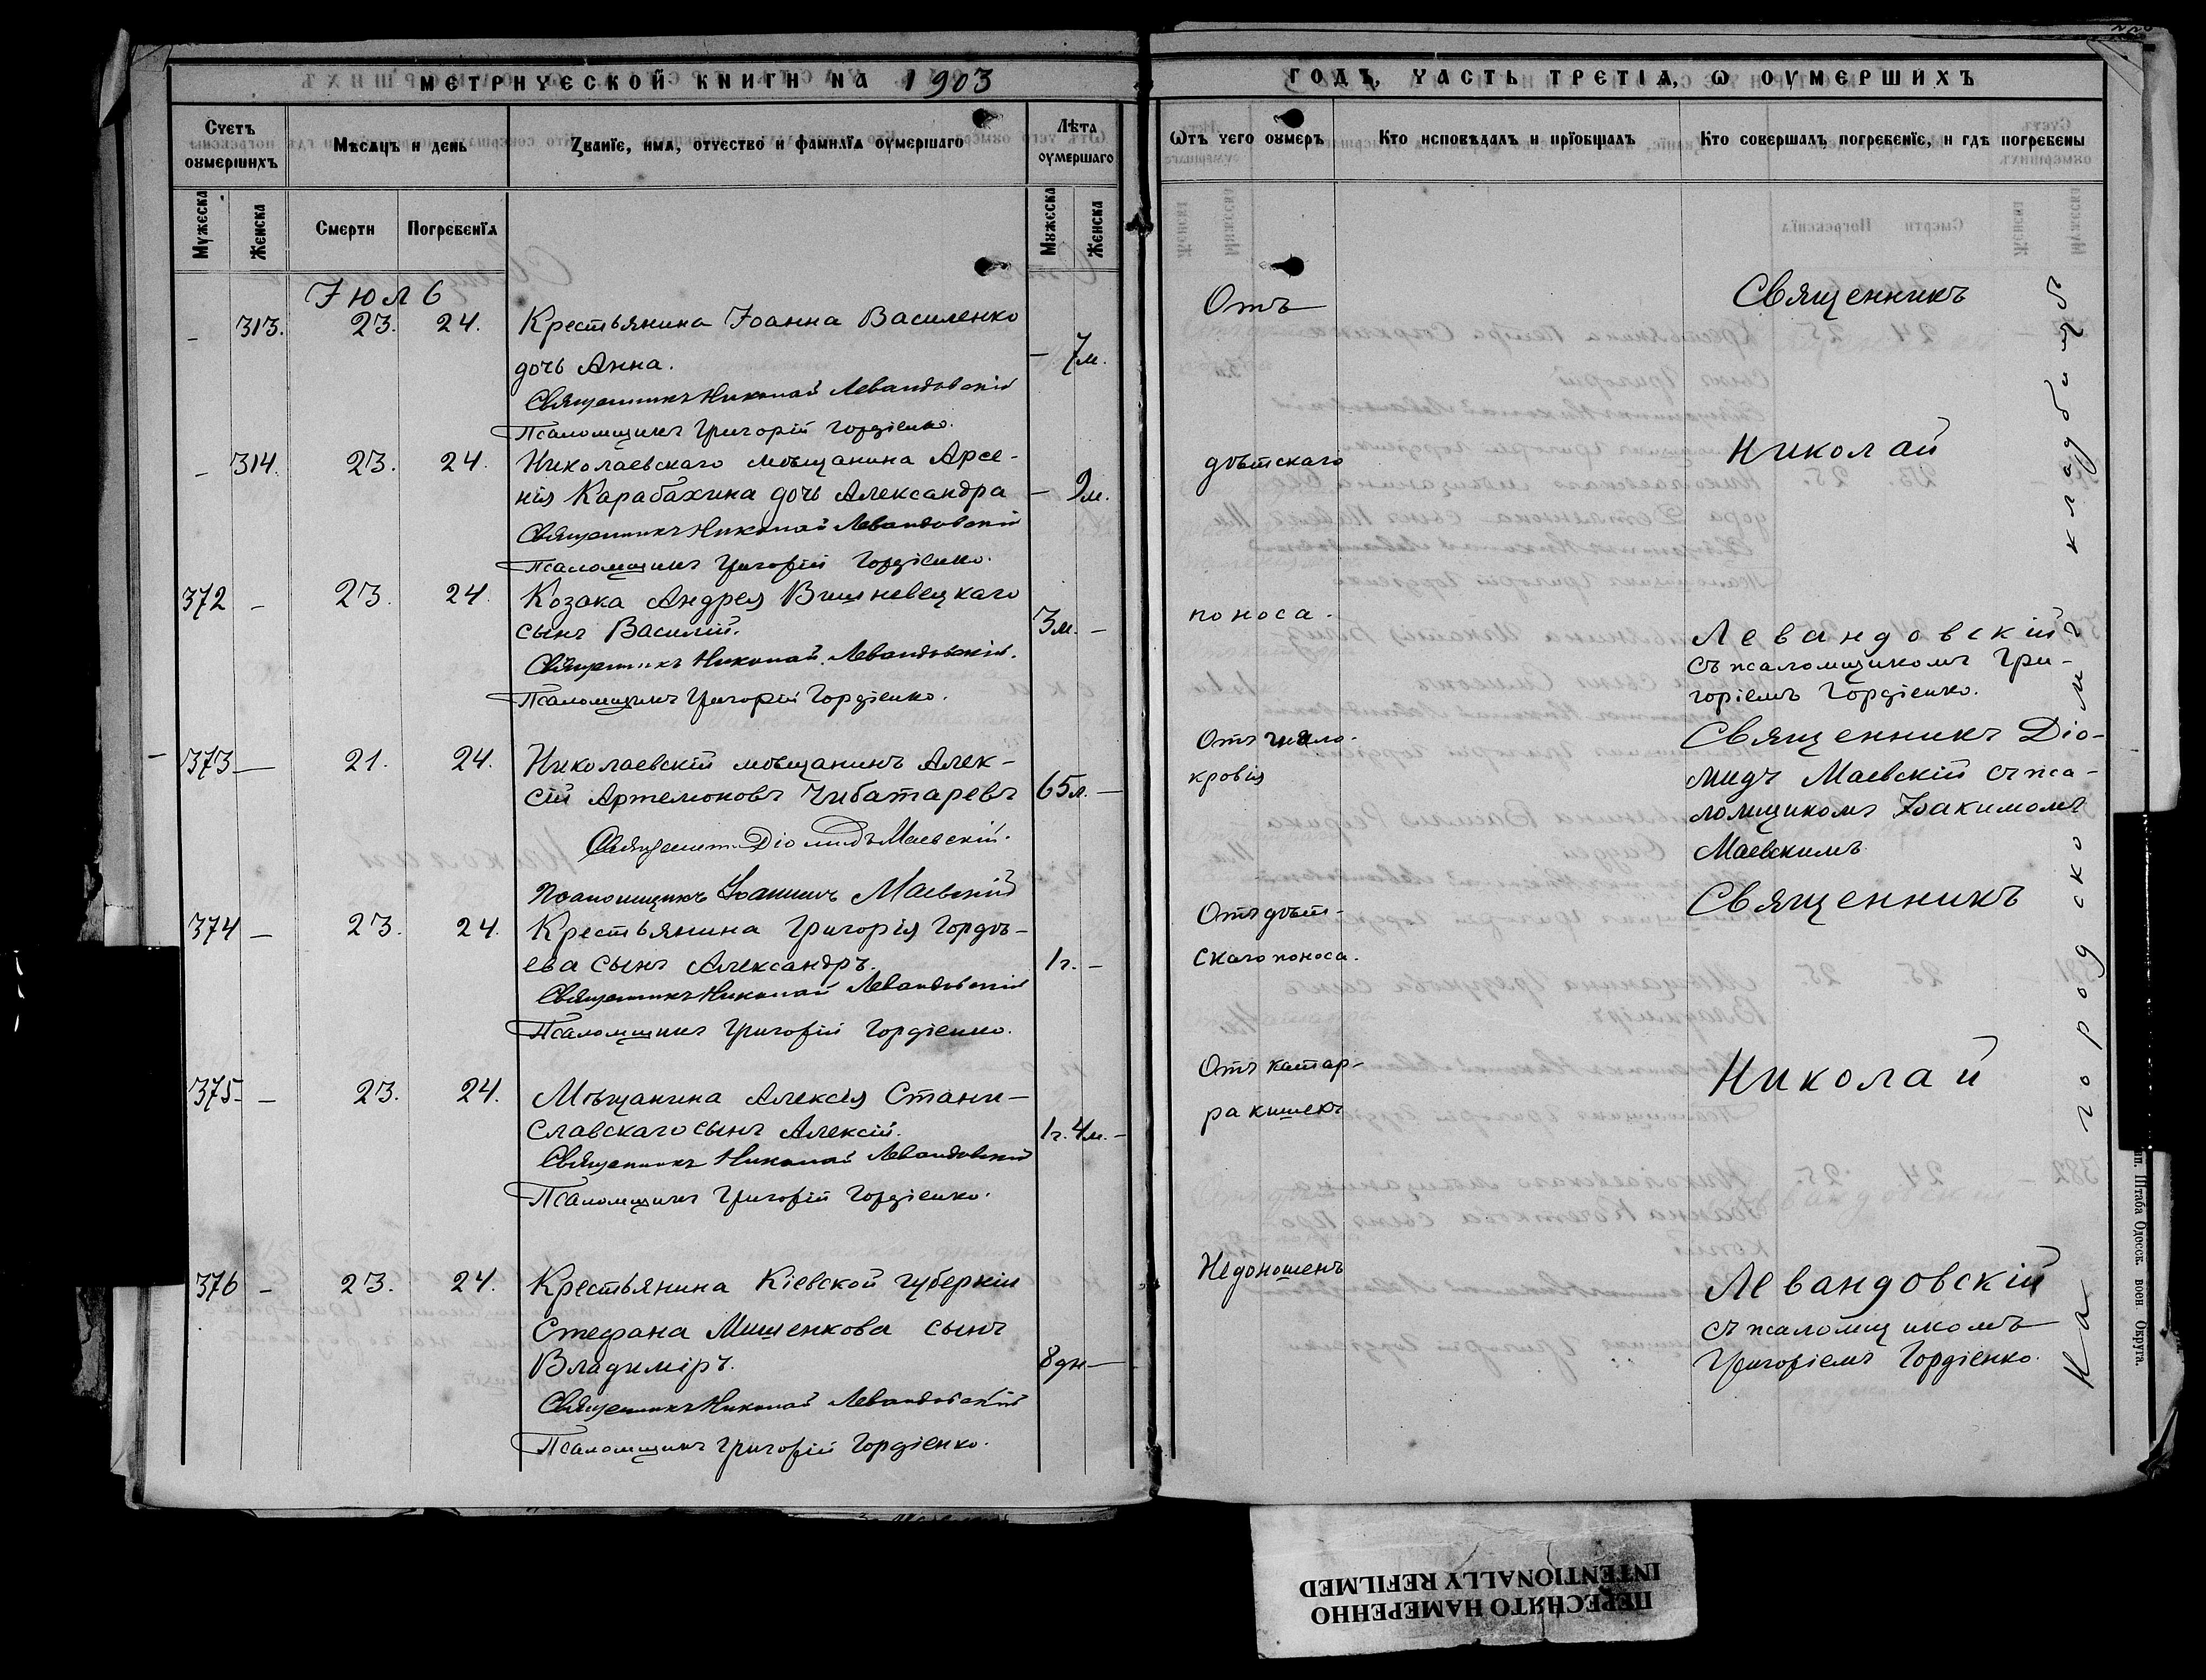 МЕТРИЧЕСКОЙ КНИГИ НА 1903
Счетъ оумершихъ
Мѣсяцъ и день
Званіе, имя, отчество и фамилія оумершаго
Лѣта оумершаго
Мужеска
Женска
Смерти
Погребенія
Мужеска
Женска
Іюль
- 313. 23. 24. Крестьянина Іоанна Василенко
дочь Анна. - 7м.
Священникъ Николай Левандовскій
Псаломщикъ Григорій Гордіенко.
- 314. 23. 24. Николаевскаго мѣщанина Арсе-
нія Карабахина дочь Александра - 9м.
Священникъ Николай Левандовскій
Псаломщикъ Григорій Гордіенко.
372 - 23. 24. Козака Андрея Вишневецкаго
сынъ Василій. 3м. -
Священникъ Николай Левандовскій.
Псаломщикъ Григорій Гордіенко.
373 - 21. 24. Николаевскій мѣщанинъ Алек-
сій Артемоновъ Чибатаревъ 65л. -
Священник Діомидъ Маевскій.
Псаломщикъ Іоакимъ Маевскій
374 - 23. 24. Крестьянина Григорія Гордѣ-
ева сынъ Александръ. 1г. -
Священникъ Николай Левандовскій
Псаломщикъ Григорій Гордіенко.
375 - 23. 24. Мѣщанина Алексія Стани-
славскаго сынъ Алексій. 1г. 4м. -
Священникъ Николай Левандовскій
Псаломщикъ Григорій Гордіенко.
376 - 23. 24. Крестьянина Кіевской губерніи
Стефана Мишенкова сынъ
Владиміръ. 8дн -
Священникъ Николай Левандовскій
Псаломщикъ Григорій Гордіенко.
ГОДЪ, ЧАСТЬ ТРЕТІЯ, Ѡ ОУМЕРШИХЪ
Ѿтъ чего оумеръ
Кто исповѣдалъ и пріобщалъ
Кто совершалъ погребеніе, и гдѣ погребены
Отъ
дѣтскаго
поноса.
Отъ гнило-
кровія
Отъ дѣт-
скаго поноса.
Отъ катар-
ра кишекъ
Недоношенъ
Священникъ
Николай
Левандовскій
съ псаломщикомъ Гри-
горіемъ Гордіенко.
Священникъ Діо-
мидъ Маевскій съ пса-
ломщикомъ Іоакимомъ
Маевскимъ
Священникъ
Николай
Левандовскій
съ псаломщикомъ
Григоріемъ Гордіенко.
На городскомъ кладбищѣ
Штаба Одесск. воен. Округа.
ПЕРЕСНЯТО НАМЕРЕННО
INTENTIONALLY REFILMED